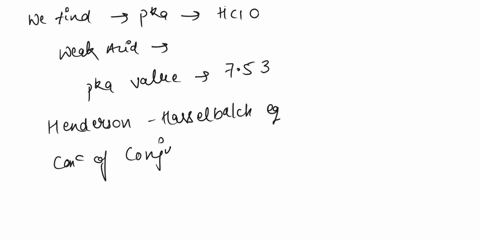 We find → pka → HClO
Weak Acid →
pka value → 7.53
Henderson - Hasselbalch eq
Conc of Conju